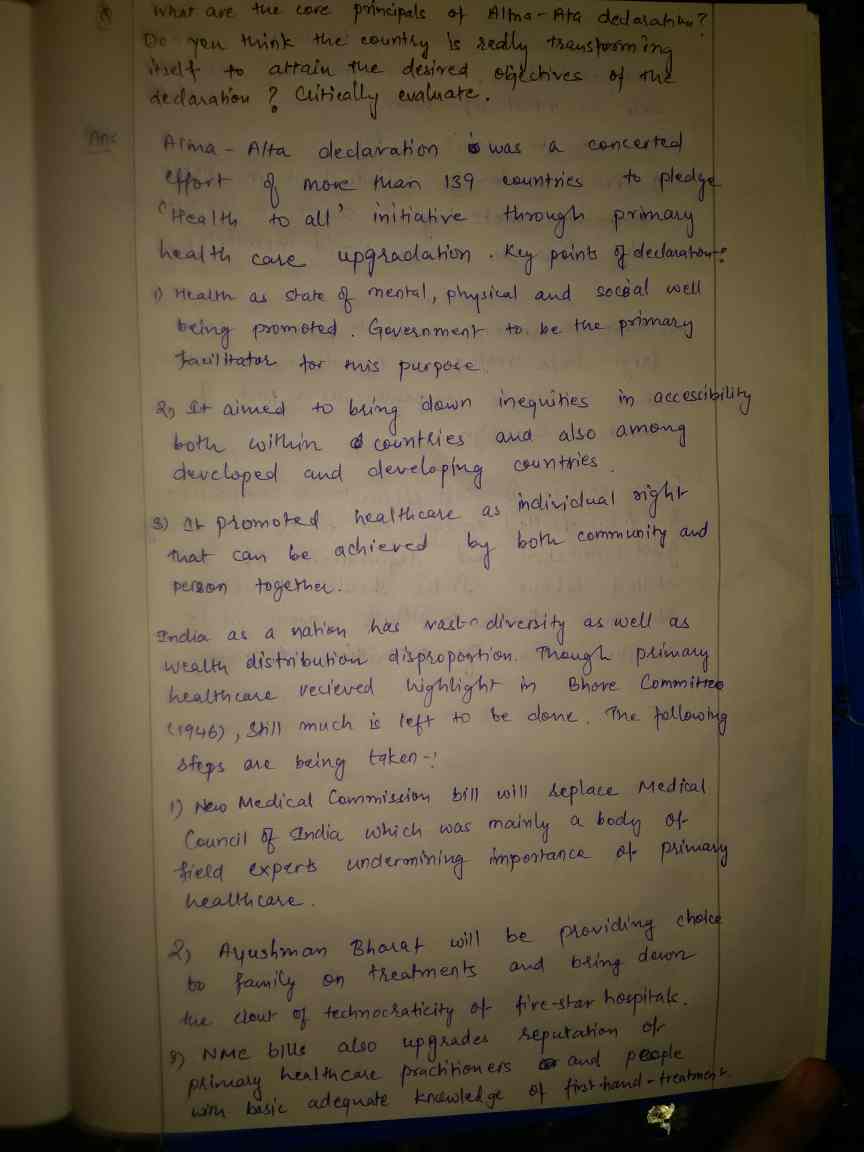 Q What are the core principals of Alma-Ata declaration?
Do you think the country is really transforming
itself to attain the desired objectives of the
declaration? Critically evaluate.
Ans Alma-Alta declaration was a concerted
effort of more than 139 countries to pledge
'Health to all' initiative through primary
health care upgradation. Key points of declaration:
1) Health as state of mental, physical and social well
being promoted. Government to be the primary
facilitator for this purpose
2) It aimed to bring down inequities in accessibility
both within countries and also among
developed and developing countries.
3) It promoted healthcare as individual right
that can be achieved by both community and
person together.
India as a nation has vast diversity as well as
wealth distribution disproportion. Though primary
healthcare recieved highlight in Bhore Committee
(1946), still much is left to be done. The following
steps are being taken -:
1) New Medical Commission bill will replace Medical
Council of India which was mainly a body of
field experts undermining importance of primary
healthcare.
2) Ayushman Bharat will be providing choice
to family on treatments and bring down
the clout of technocraticity of five-star hospitals.
3) NMC bills also upgrades reputation of
primary healthcare practitioners and people
with basic adequate knowledge of first-hand-treatment.